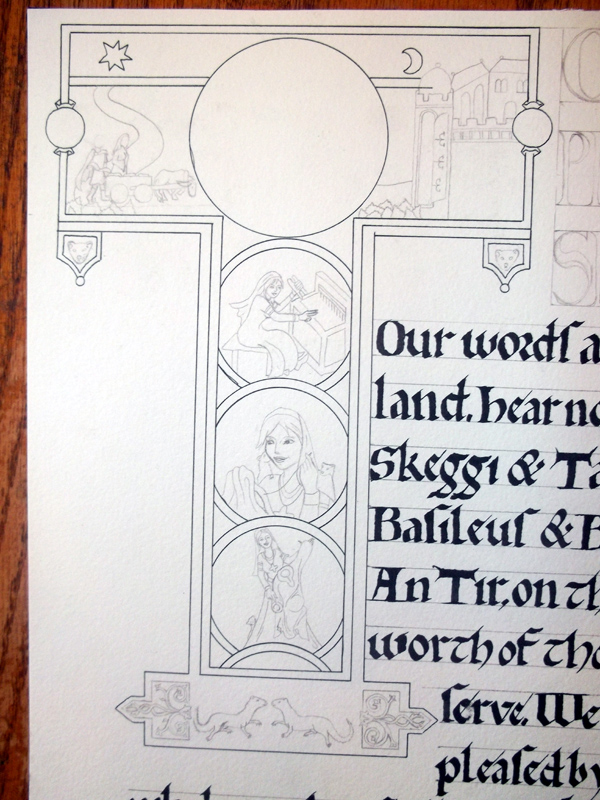 Our wordſ a
land, hear no
Skeggi & Ta
Baſileuſ & B
An Tir, on th
worth of the
ſerve. We
pleaſed by